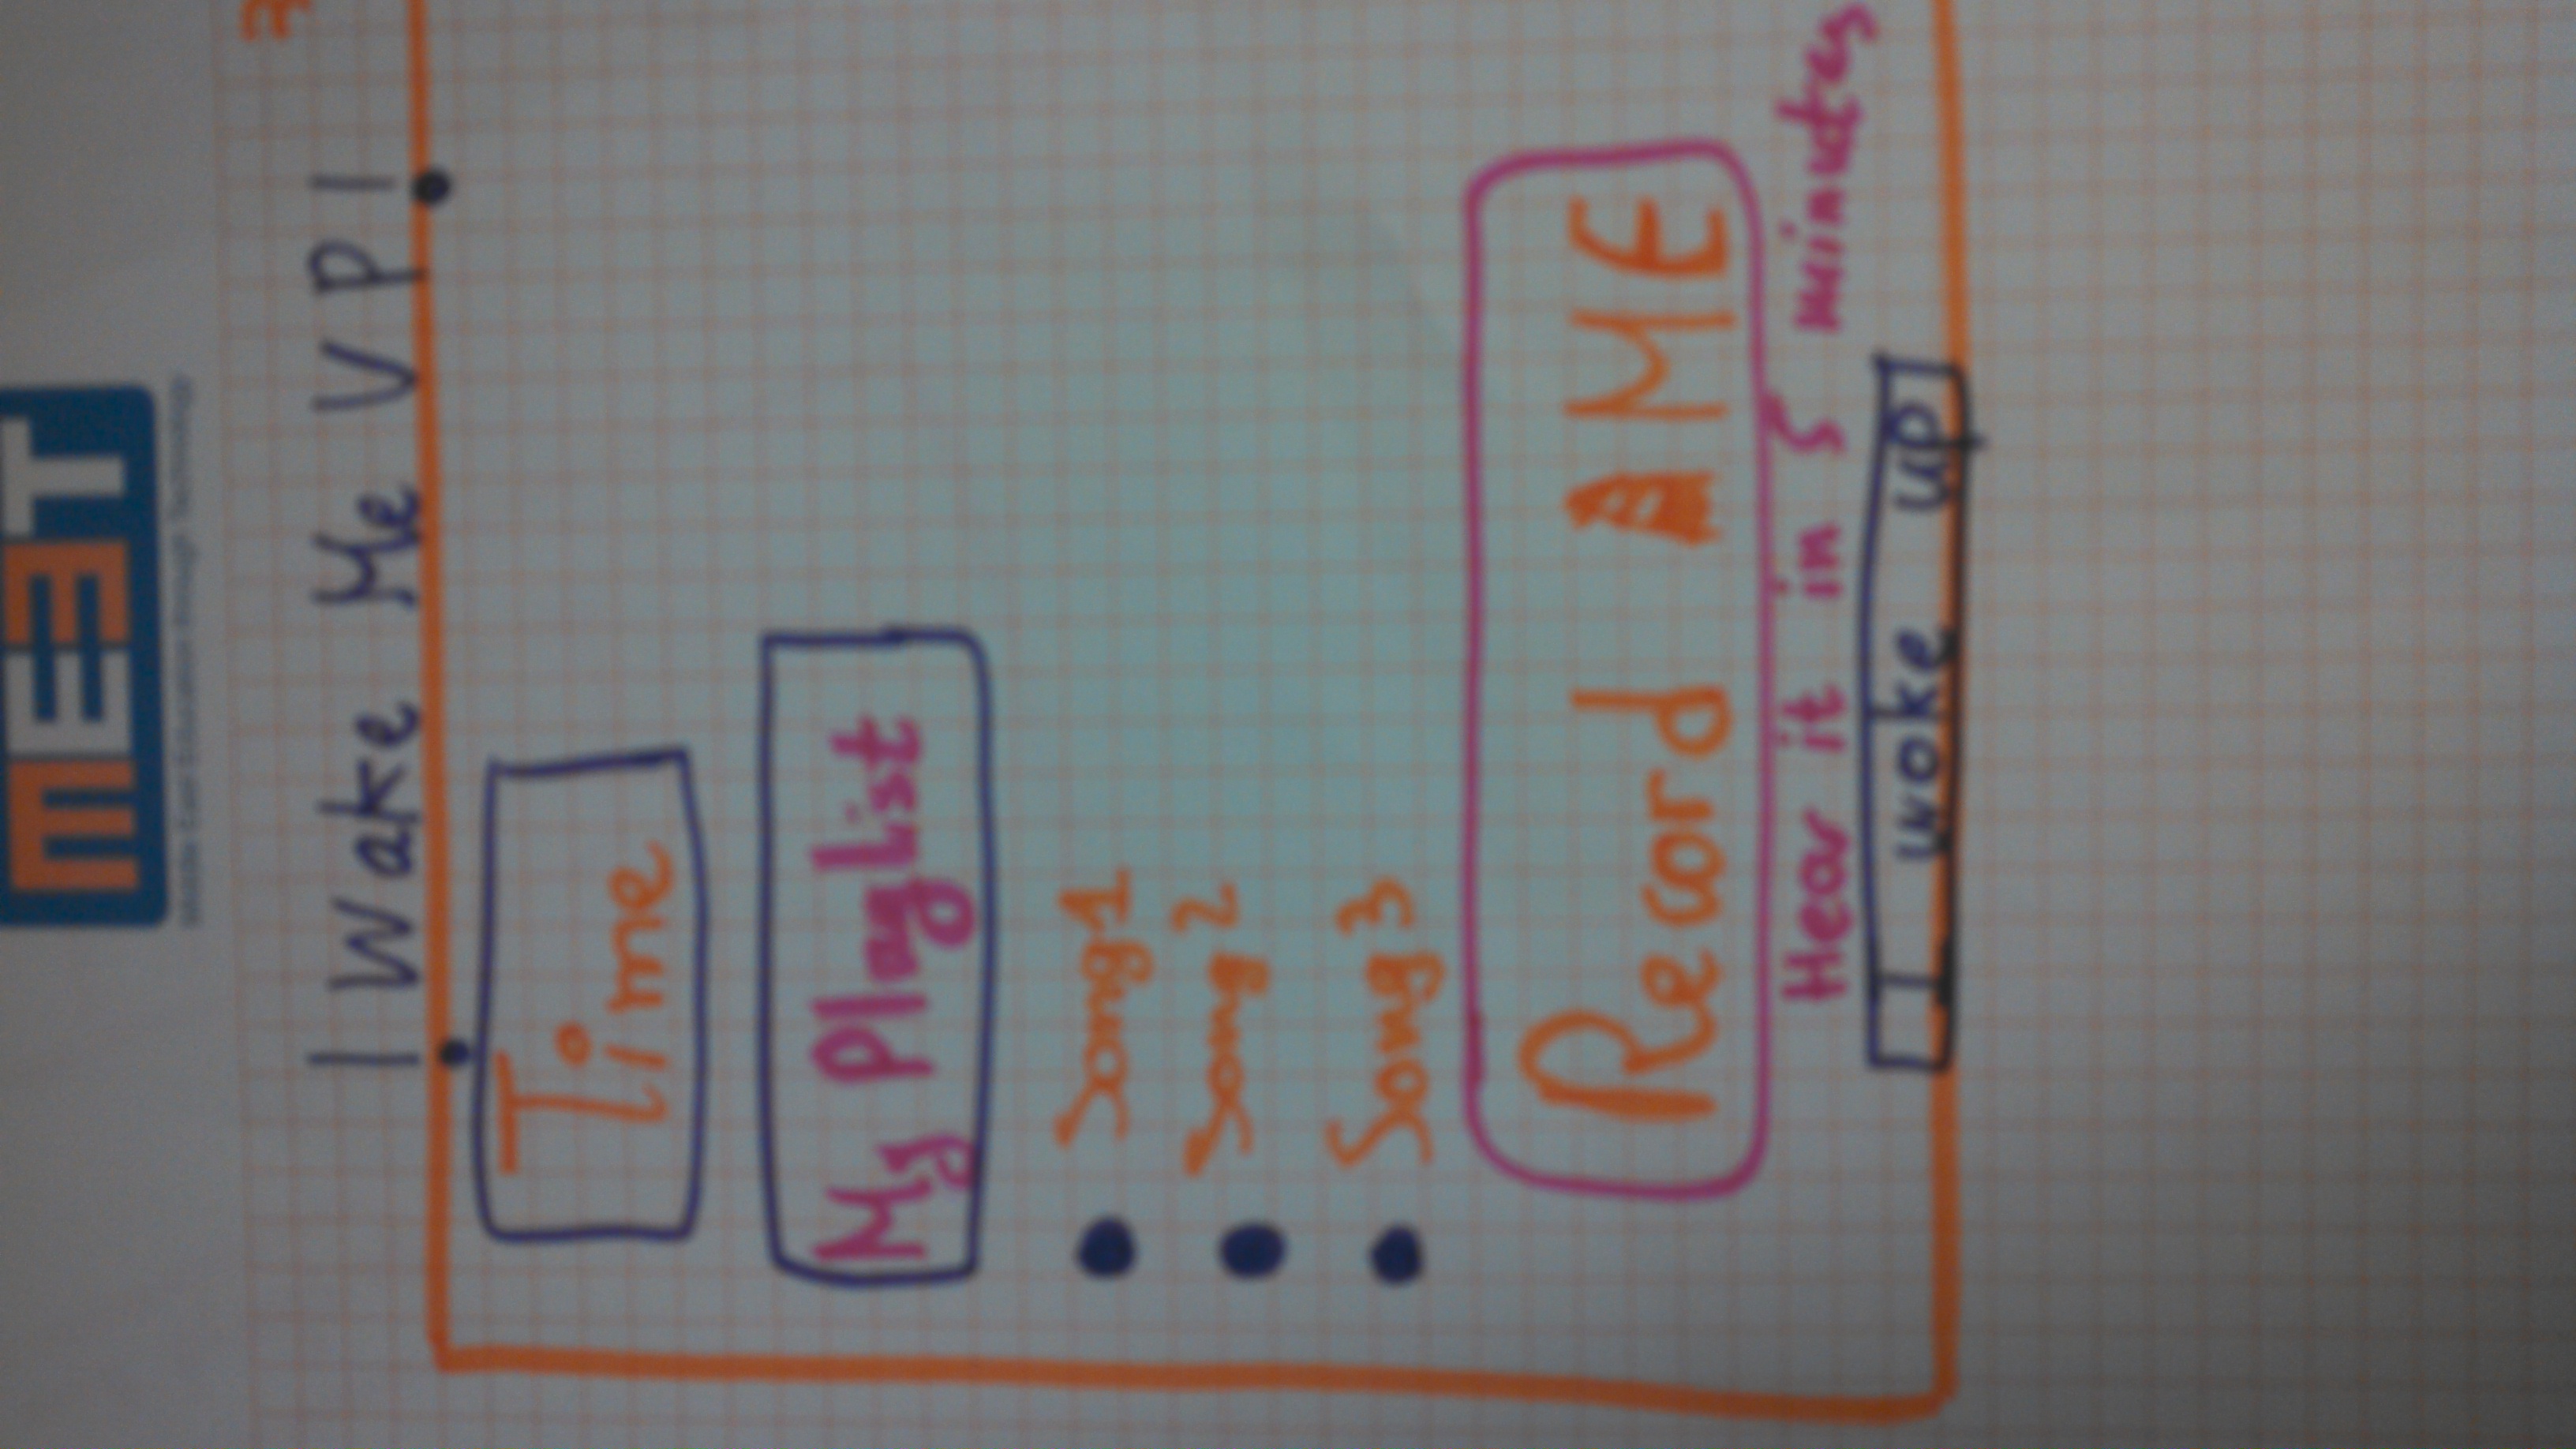 MEET
Middle East Education through Technology
! Wake Me UP!
Time
My Playlist
Song1
Song2
Song3
Record ME
Hear it in 5 minutes
I woke up